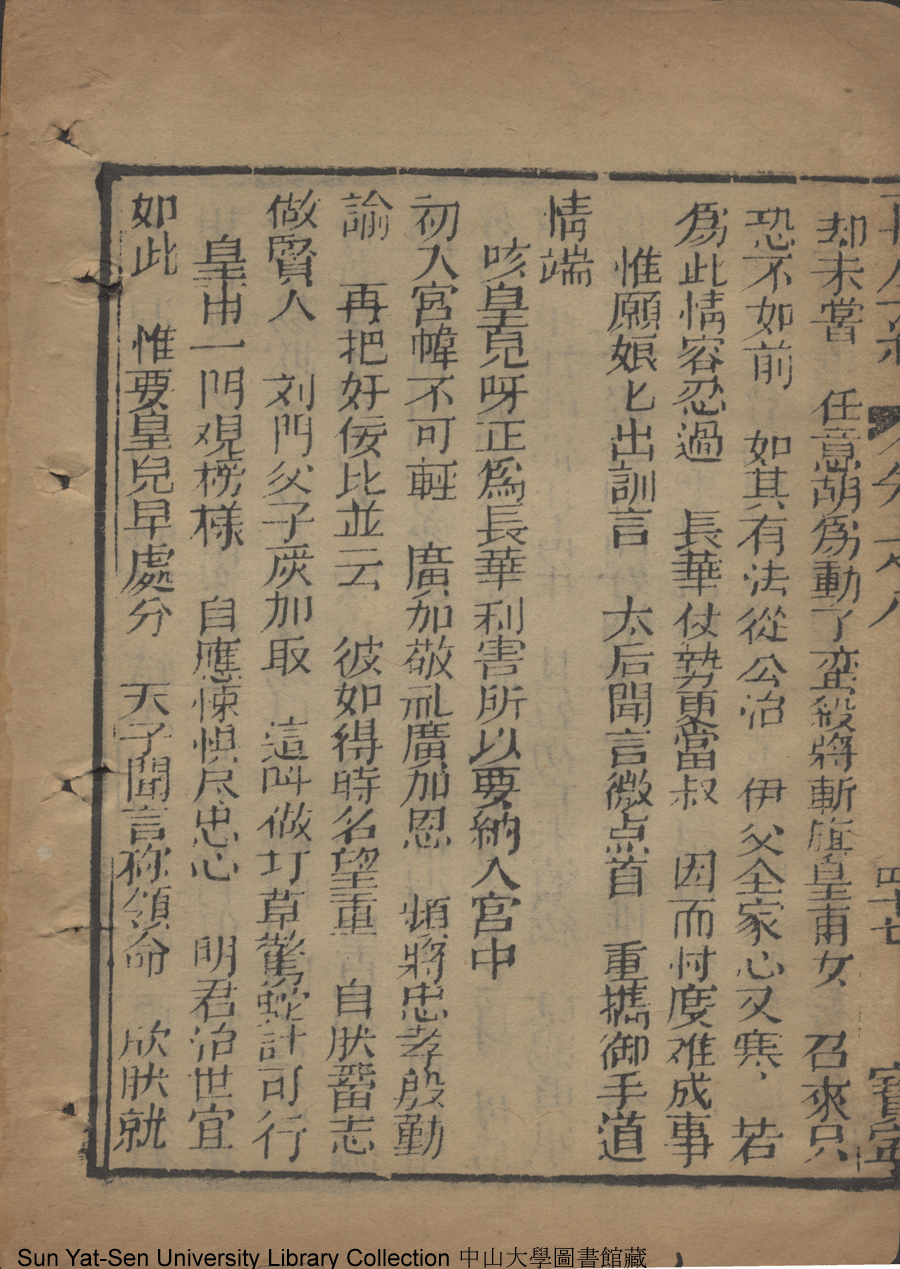 却未嘗　任意胡爲動了蛮殺將斬旗皇甫女　召來只
恐不如前　如其有法從公治　伊父全家心又寒，若
爲此情容忍過　長華仗势更當叔　因而忖度难成事
惟願娘匕出訓言　太后聞言微点首　重擕御手道
情端
咳皇兒呀正爲長華利害所以要納入宮中
初入宮幃不可輕　廣加敬礼廣加恩　頻將忠孝殷勤
諭　再把奸佞比並云　彼如得時名望重　自肰畱志
做賢人　刘門父子灰加取　這叫做打草驚蛇計可行
皇甫一門观榜樣　自應悚惧尽忠心　明君治世宜
如此　惟要皇兒早處分　天子聞言称領命　欣肰就
四十七
Sun Yat-Sen University Library Collection 中山大學圖書館藏